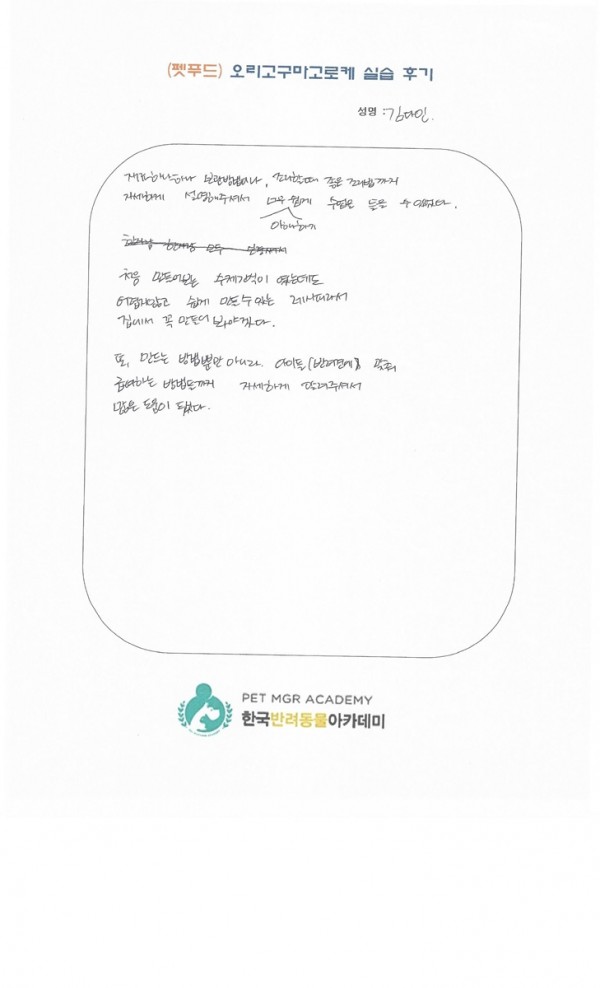 (펫푸드) 오리고구마고로케 실습 후기
성명 : 김다인.
보관방법이나, 조리할때 좋은 조리법까지
자세하게 설명해주셔서 너무 쉽게 수업을 들을 수 있었다.
이해하기
처음 만들어보는 수제간식이 였는데도
어렵지않고 쉽게 만들 수 있는 레시피라서
집에서 꼭 만들어 봐야겠다.
또, 만드는 방법뿐만 아니라. 아이들(반려견에)
급여하는 방법도 자세하게 알려주셔서
많은 도움이 됐었다.
PET MGR ACADEMY
한국반려동물아카데미